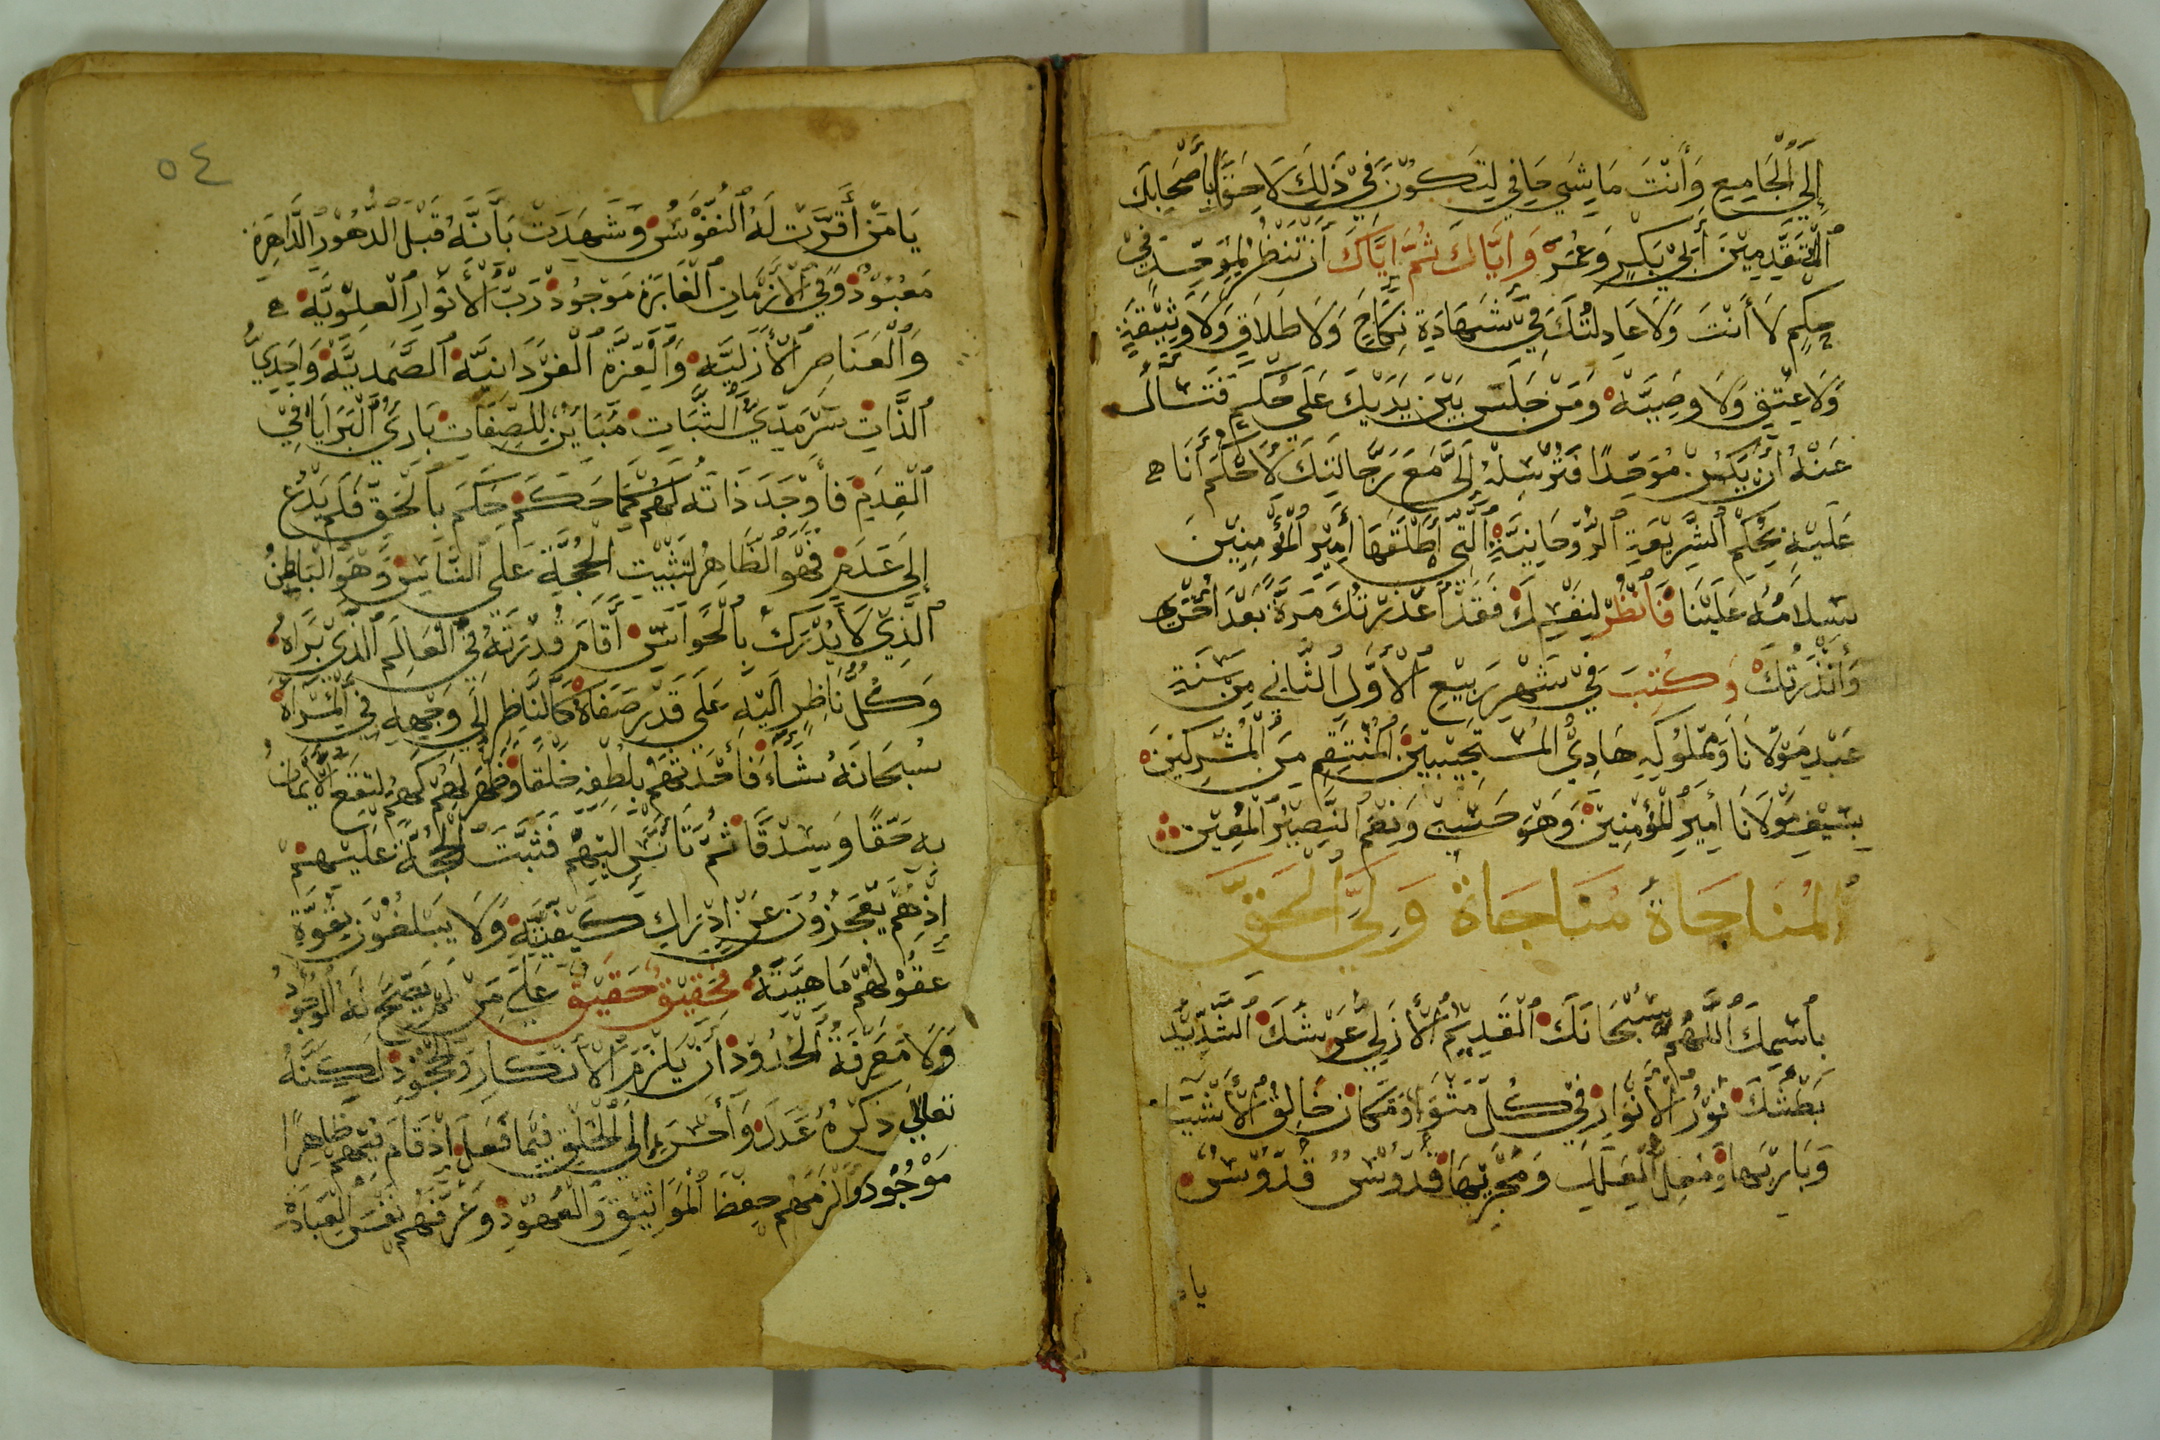 إلي الجامع وأنت ماشي حافي لتكون في ذلك لاحقًا بأصحابك
المتقدمين أبي بكر وعمر وإياك ثم إياك أن تنظر لموحّد في
حكم لا أنت ولا عادلتك في شهادة نكاح ولا طلاق ولا وثيقة
ولا عتق ولا وصية ومن جلس بين يديك على حكم فتسأل
عنه أن يكن موحّدًا فترسله إليّ مع رجّالتك لأحكم أنا
عليه بحكم الشريعة الروحانية التي أطلقها أمير المؤمنين
سلامه علينا فانظر لنفسك فقد أعذرتك مرة بعد أخرى
وأنذرتك وكتب في شهر ربيع الأول الثاني من سنة
عبد مولانا ومملوكه هادي المستجيبين المنتقم من المشركين
بسيف مولانا أمير المؤمنين وهو حسبي ونعم النصير المعين
المناجاة مناجاة ولي الحق
باسمك اللهم سبحانك القديم الأزلي عرشك الشديد
بطشك نور الأنوار في كل مثوا ومكان خالق الأشيا
وباريها ومعل العلل ومجريها قدوس قدوس
يا من
٥٤
يا من أقرت له النفوس وشهدت بأنه قبل الدهور الداهره
معبود وفي الأزمان الغابرة موجود رب الأنوار العلوية
والعناصر الأزلية والعزة الفردانية الصمدية واحدي
الذات سرمدي الثبات مباين للصفات باري البرايا في
القدم فأوجد ذاته لهم كما حكم حكم بالحق فلم يدع
إلى عدم فهو الظاهر لتثبيت الحجة على الناس وهو الباطن
الذي لا يدرك بالحواس أقام قدرته في العالم الذي براه
وكل ناظر إليه على قدر صفاه كالناظر إلي وجهه في المراه
سبحانه شاء فأحدثهم بلطفه خلقا وظهر لهم كهم لتقع الأيمان
به حقًا وسدقًا ثم تأنس إليهم فثبت الحجة عليهم
إذ هم يعجزون عن إدراك كيفيته ولا يبلغون بقوة
عقولهم ماهيته فحقيق حقيق على من لم يصح له الوجود
ولا معرفة الحدود أن يلزم الأنكار والجحود لكنه
تعالى ذكره عدل وأحسن إلى الخلق فيما فعل إذ قام فيهم ظاهرًا
موجود وألزمهم حفظ المواثيق والعهود وعرفهم نفس العبادة